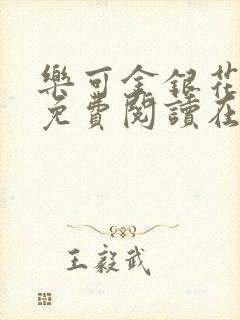 樂可金銀花
免費閱讀在
王毅武